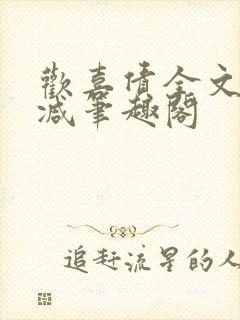 歡喜債全文
減筆趣閣
追赶流星的人